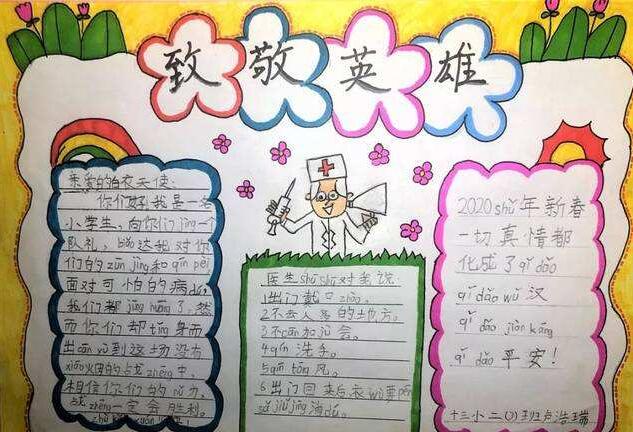 致敬英雄
亲爱的白衣天使：
你们好！我是一名
小学生，向你们jìng一个
队礼，biǎo达我对你
们的zūn jìng和qīn pèi
面对可怕的病dú，
我们都jīng huāng了，然
而你们却tǐng身而
出cān yù到这场没有
xiāo烟的zhàn zhēng中。
相信你们的nǔ力，
zhēng一定会胜利。
医生shū shu对我说
1出门戴口zhào。
2不去人多的地方。
3不cān加jù会。
4qín洗手。
5qín tōng风。
6出门回来后，衣wù要pēn
sǎ jiǔ jīng消dú。
2020 shǔ年新春
一切真情都
化成了qí dǎo
qí dǎo wǔ汉
qí dǎo jiàn kāng
qí dǎo平安！
十三小二(2)班卢浩瑞